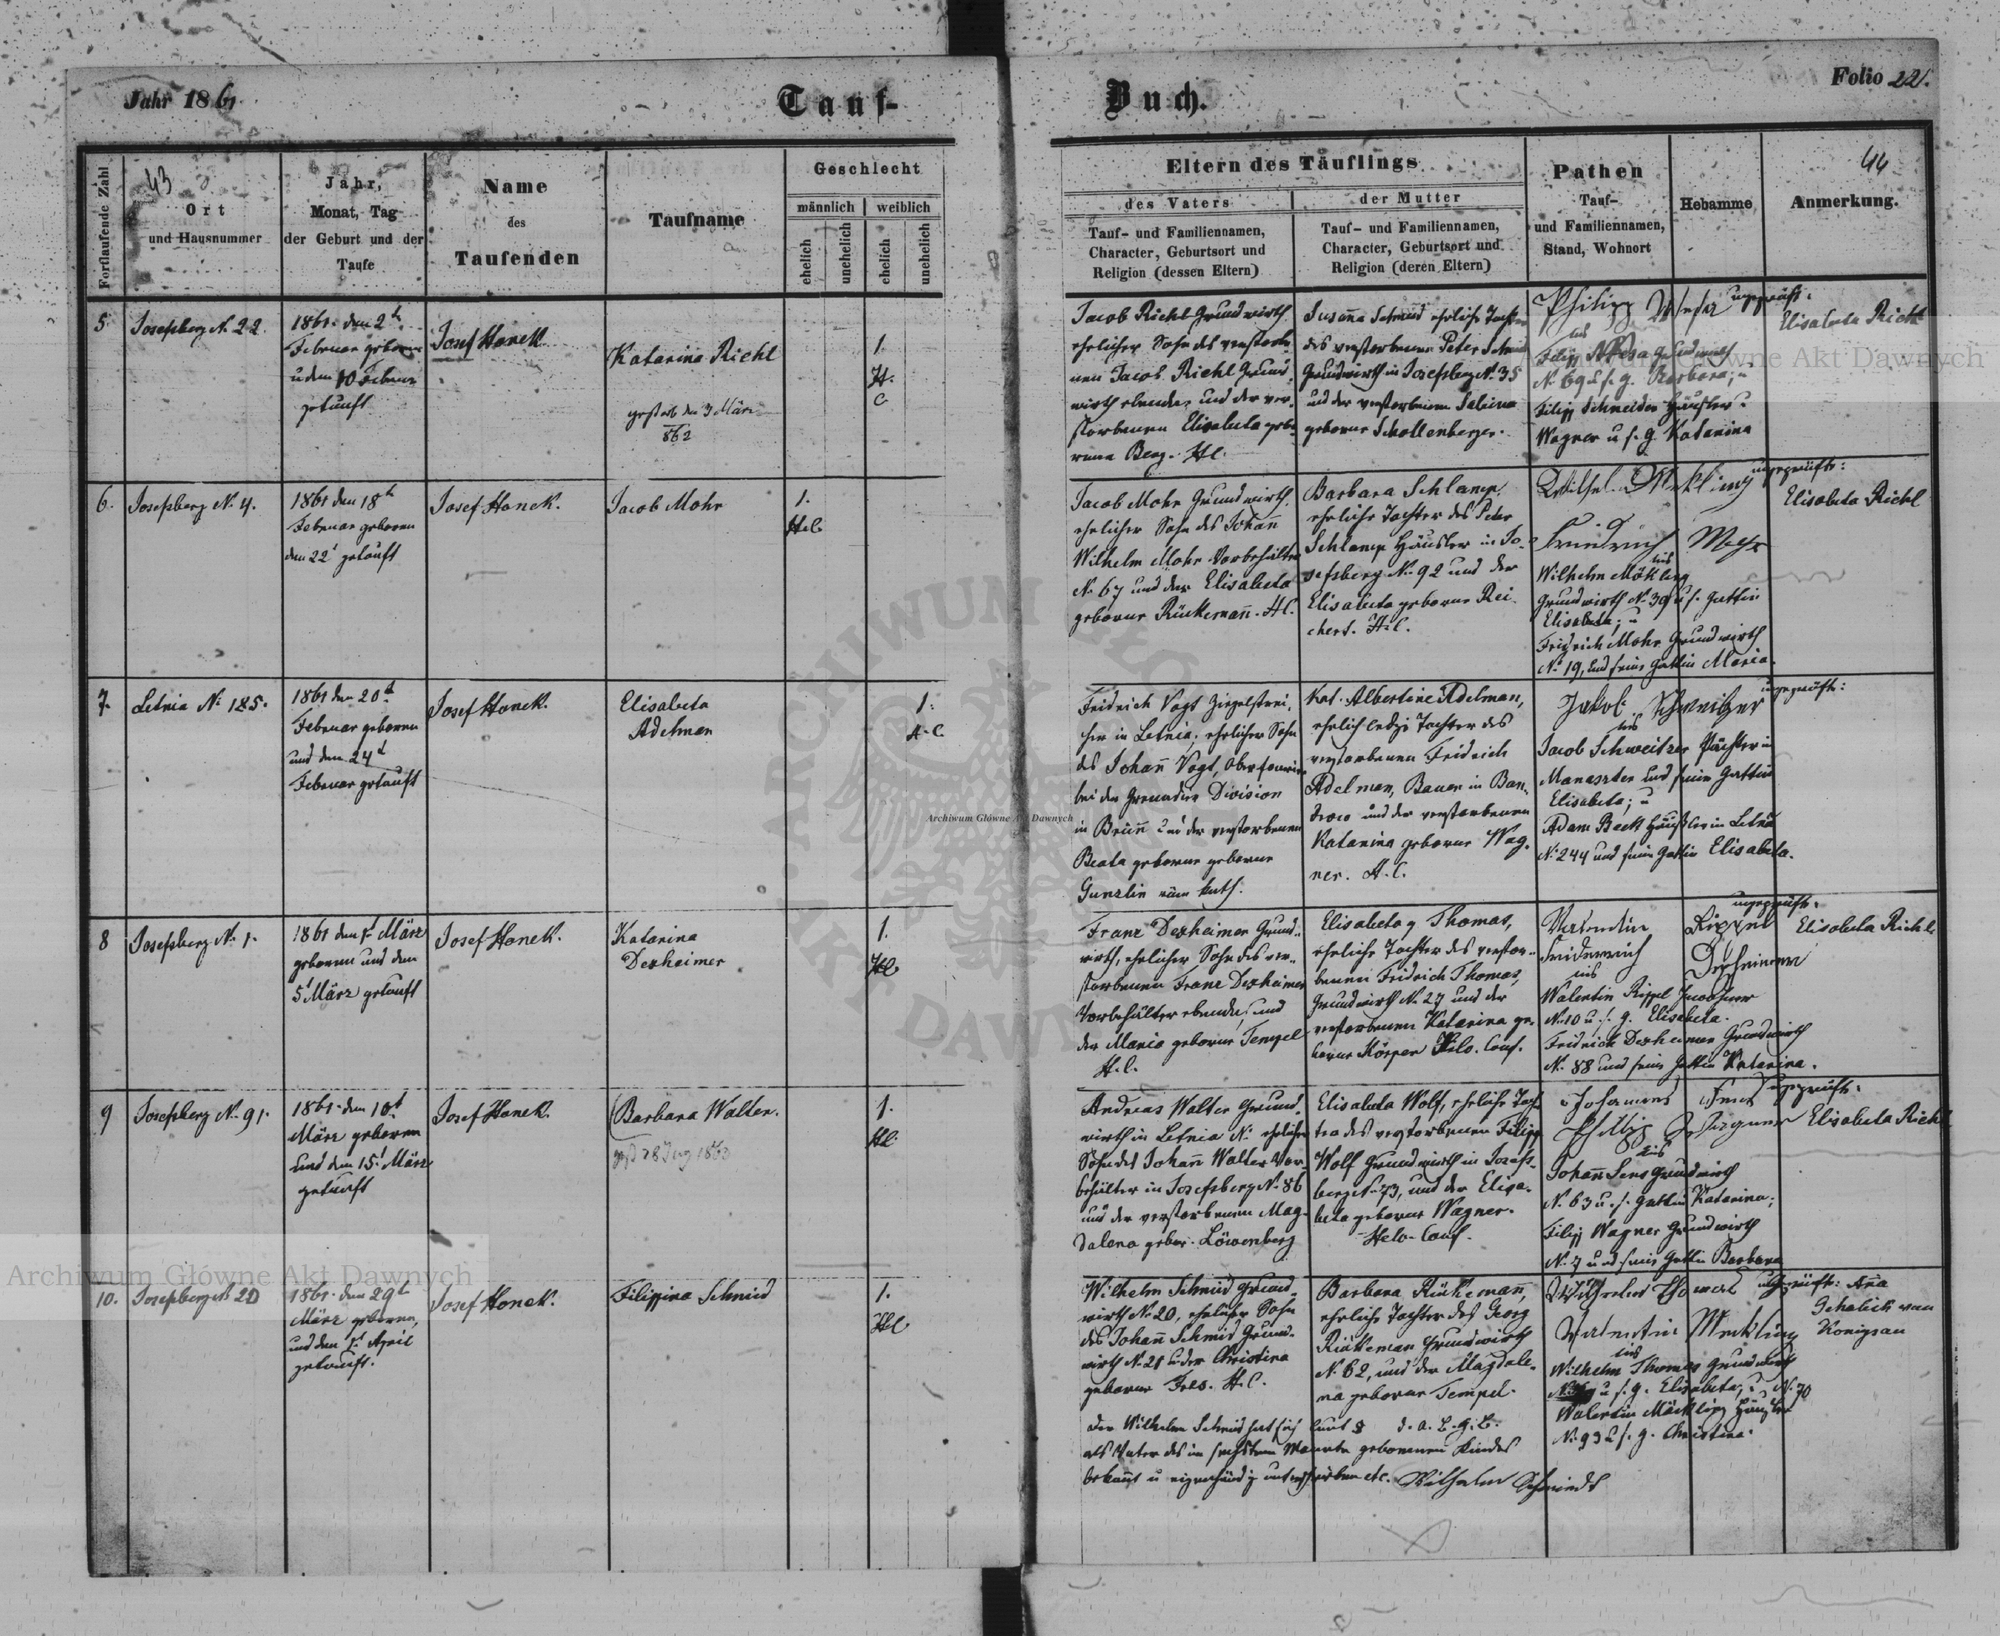 Jahr 1861
Tauf-
Buch.
Folio 22.
43
44
Fortlaufende Zahl
Ort
und Hausnummer
Jahr,
Monat, Tag
der Geburt und der
Taufe
Name
des
Taufenden
Taufname
Geschlecht
männlich
weiblich
ehelich
unehelich
ehelich
unehelich
Eltern des Täuflings
des Vaters
Tauf- und Familiennamen,
Character, Geburtsort und
Religion (dessen Eltern)
der Mutter
Tauf- und Familiennamen,
Character, Geburtsort und
Religion (deren Eltern)
Pathen
Tauf-
und Familiennamen,
Stand, Wohnort
Hebamme
Anmerkung.
5
Josefsberg N. 22.
1861 den 2t
Februar geboren
u den 10 Februar
getauft
Josef Honek
Katarina Riehl
gestorb den 3 März
862
1.
H.
C
Jacob Riehl Grundwirth
ehelicher Sohn des verstorbe-
nen Jacob Riehl Grund-
wirth ebenda, und der ver-
storbenen Elisabeta gebo-
rene Berg. H.C.
Susana Schmid eheliche Tochter
des verstorbenen Peter Schmid
Grundwirth in Josefsberg N. 35
und der verstorbenen Salcina
geborne Schollenberger.
Philipp
ungeprüft:
Filipp
N. 69 u s. g. Barbara; u
Filipp Schneider Häusler
Wagner u s. g. Katarina
Elisabeta Riehl
6.
Josefsberg N. 4.
1861 den 18t
Februar geboren
den 22t getauft
Josef Honek.
Jacob Mohr
1.
H.C.
Jacob Mohr Grundwirth
ehelicher Sohn des Johann
Wilhelm Mohr Vorbehälter
N. 67 und der Elisabeta
geborne Rückemann. H.C.
Barbara Schlamp,
eheliche Tochter des Peter
Schlamp Häusler in Jo-
sefsberg N. 92 und der
Elisabeta geborne Rei-
chert. H.C.
Wilhelm Mekling
ungeprüft:
Friedrich Mohr
Wilhelm Mökling
Grundwirth N. 39 u s. Gattin
Elisabeta; u
Fridrich Mohr Grundwirth
N. 19, und seine Gattin Maria.
Elisabeta Riehl
7.
Letnia N. 185.
1861 den 20t
Februar geboren
und den 24t
Februar getauft
Josef Honek.
Elisabeta
Adelman
1.
A.C.
Fridrich Vogt Ziegelstrei-
cher in Letnia, ehelicher Sohn
des Johann Vogt,
bei der Grenadier Division
in Brünn und der verstorbenen
Beata geborne geborne
Gunzlin
Kat. Albertine Adelman,
ehelich ledige Tochter des
verstorbenen Fridrich
Adelman, Bauer in Ban-
drow und der verstorbenen
Katarina geborne Wag-
ner. A.C.
Jakob Schweitzer
ungeprüft:
Jacob Schweitzer Pächter in
Manaszter und seine Gattin
Elisabeta; u
Adam Beck Häusler in Letnia
N. 244 und seine Gattin Elisabeta.
8
Josefsberg N. 1.
1861 den 1t März
geboren und den
5t März getauft
Josef Honek.
Katarina
Dexheimer
1.
H.C.
Franz Dexheimer Grund-
wirth, ehelicher Sohn des ver-
storbenen Franz Dexheimer
Vorbehälter ebenda, und
der Maria geborne Tempel
H.C.
Elisabeta g Thomas,
eheliche Tochter des verstor-
benen Fridrich Thomas,
Grundwirth N. 27 und der
verstorbenen Katarina ge-
borne Körper Helv. Conf.
Valentin Rippel
ungeprüft:
Friederich Dexheimer
Walentin Rippel Inwohner
N. 10 u s. g. Elisabeta.
Fridrich Dexheimer Grundwirth
N. 88 und seine Gattin Katarina.
Elisabeta Riehl
9
Josefsberg N. 91.
1861 den 10t
März geboren
und den 15t März
getauft
Josef Honek.
Barbara Walter.
1.
H.C.
Andreas Walter Grund-
wirth in Letnia N. ehelicher
Sohn des Johann Walter Vor-
behälter in Josefsberg N. 86
und der verstorbenen Mag-
dalena gebor. Löwenberg
Elisabeta Wolf, eheliche Toch-
ter des verstorbenen Filipp
Wolf Grundwirth in Josefs-
berg N. 73, und der Elisa-
beta geborne Wagner.
Helv. Conf.
Johannes
ungeprüft:
Philipp Wagner
Johann Sens Grundwirth
N. 63 u. s. Gattin Katarina;
Filipp Wagner Grundwirth
N. 7 und seine Gattin Barbara
Elisabeta Riehl
10.
Josefsberg N. 20
1861 den 29t
März geboren,
und den 1t April
getauft.
Josef Honek.
Filippina Schmid
1.
H.C.
Wilhelm Schmid Grund-
wirth N. 20, ehelicher Sohn
des Johann Schmid Grund-
wirth N. 21 u der Christina
geborne Fres. H.C.
Barbara Rückemann,
eheliche Tochter des Georg
Rückeman Grundwirth
N. 62, und der Magdale-
na geborne Tempel.
Der Wilhelm Schmid hat sich laut § d. a. b. G. B.
als Vater des im sechsten Monate geborenen Kindes
bekannt u eigenhändig unterschrieben etc. Wilhelm Schmidt
Wilhelm Thomas
Valentin Mekling
Wilhelm Thomas Grundwirth
u s. g. Elisabeta; u N. 70
Walentin Mäckling Häusler
N. 93 u s. g. Christina.
ungeprüft: Anna
Schalick von
Königsau
Archiwum Główne Akt Dawnych
Archiwum Główne Akt Dawnych
Główne Akt Dawnych
ARCHIWUM GŁÓWNE AKT DAWNYCH